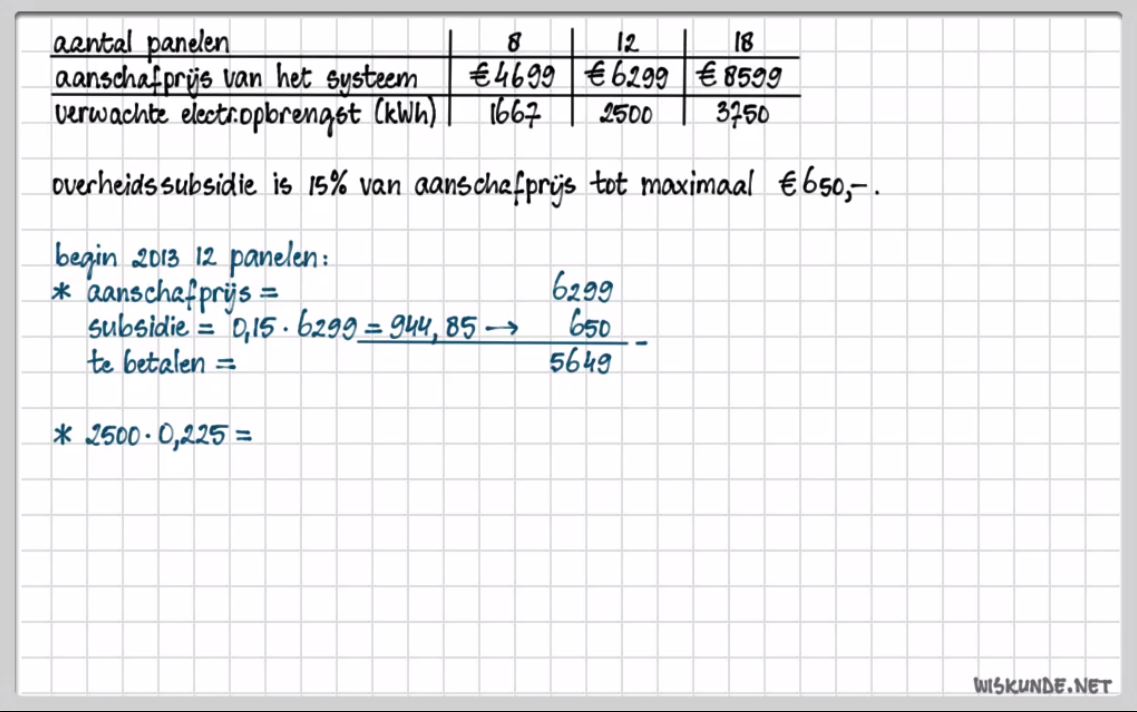 aantal panelen 8 12 18
aanschafprijs van het systeem €4699 €6299 €8599
verwachte electr.opbrengst (kWh) 1667 2500 3750
overheidssubsidie is 15% van aanschafprijs tot maximaal €650,-.
begin 2013 12 panelen:
* aanschafprijs = 6299
subsidie = 0,15 · 6299 = 944,85 → 650
te betalen = 5649 -
* 2500 · 0,225 =
WISKUNDE.NET